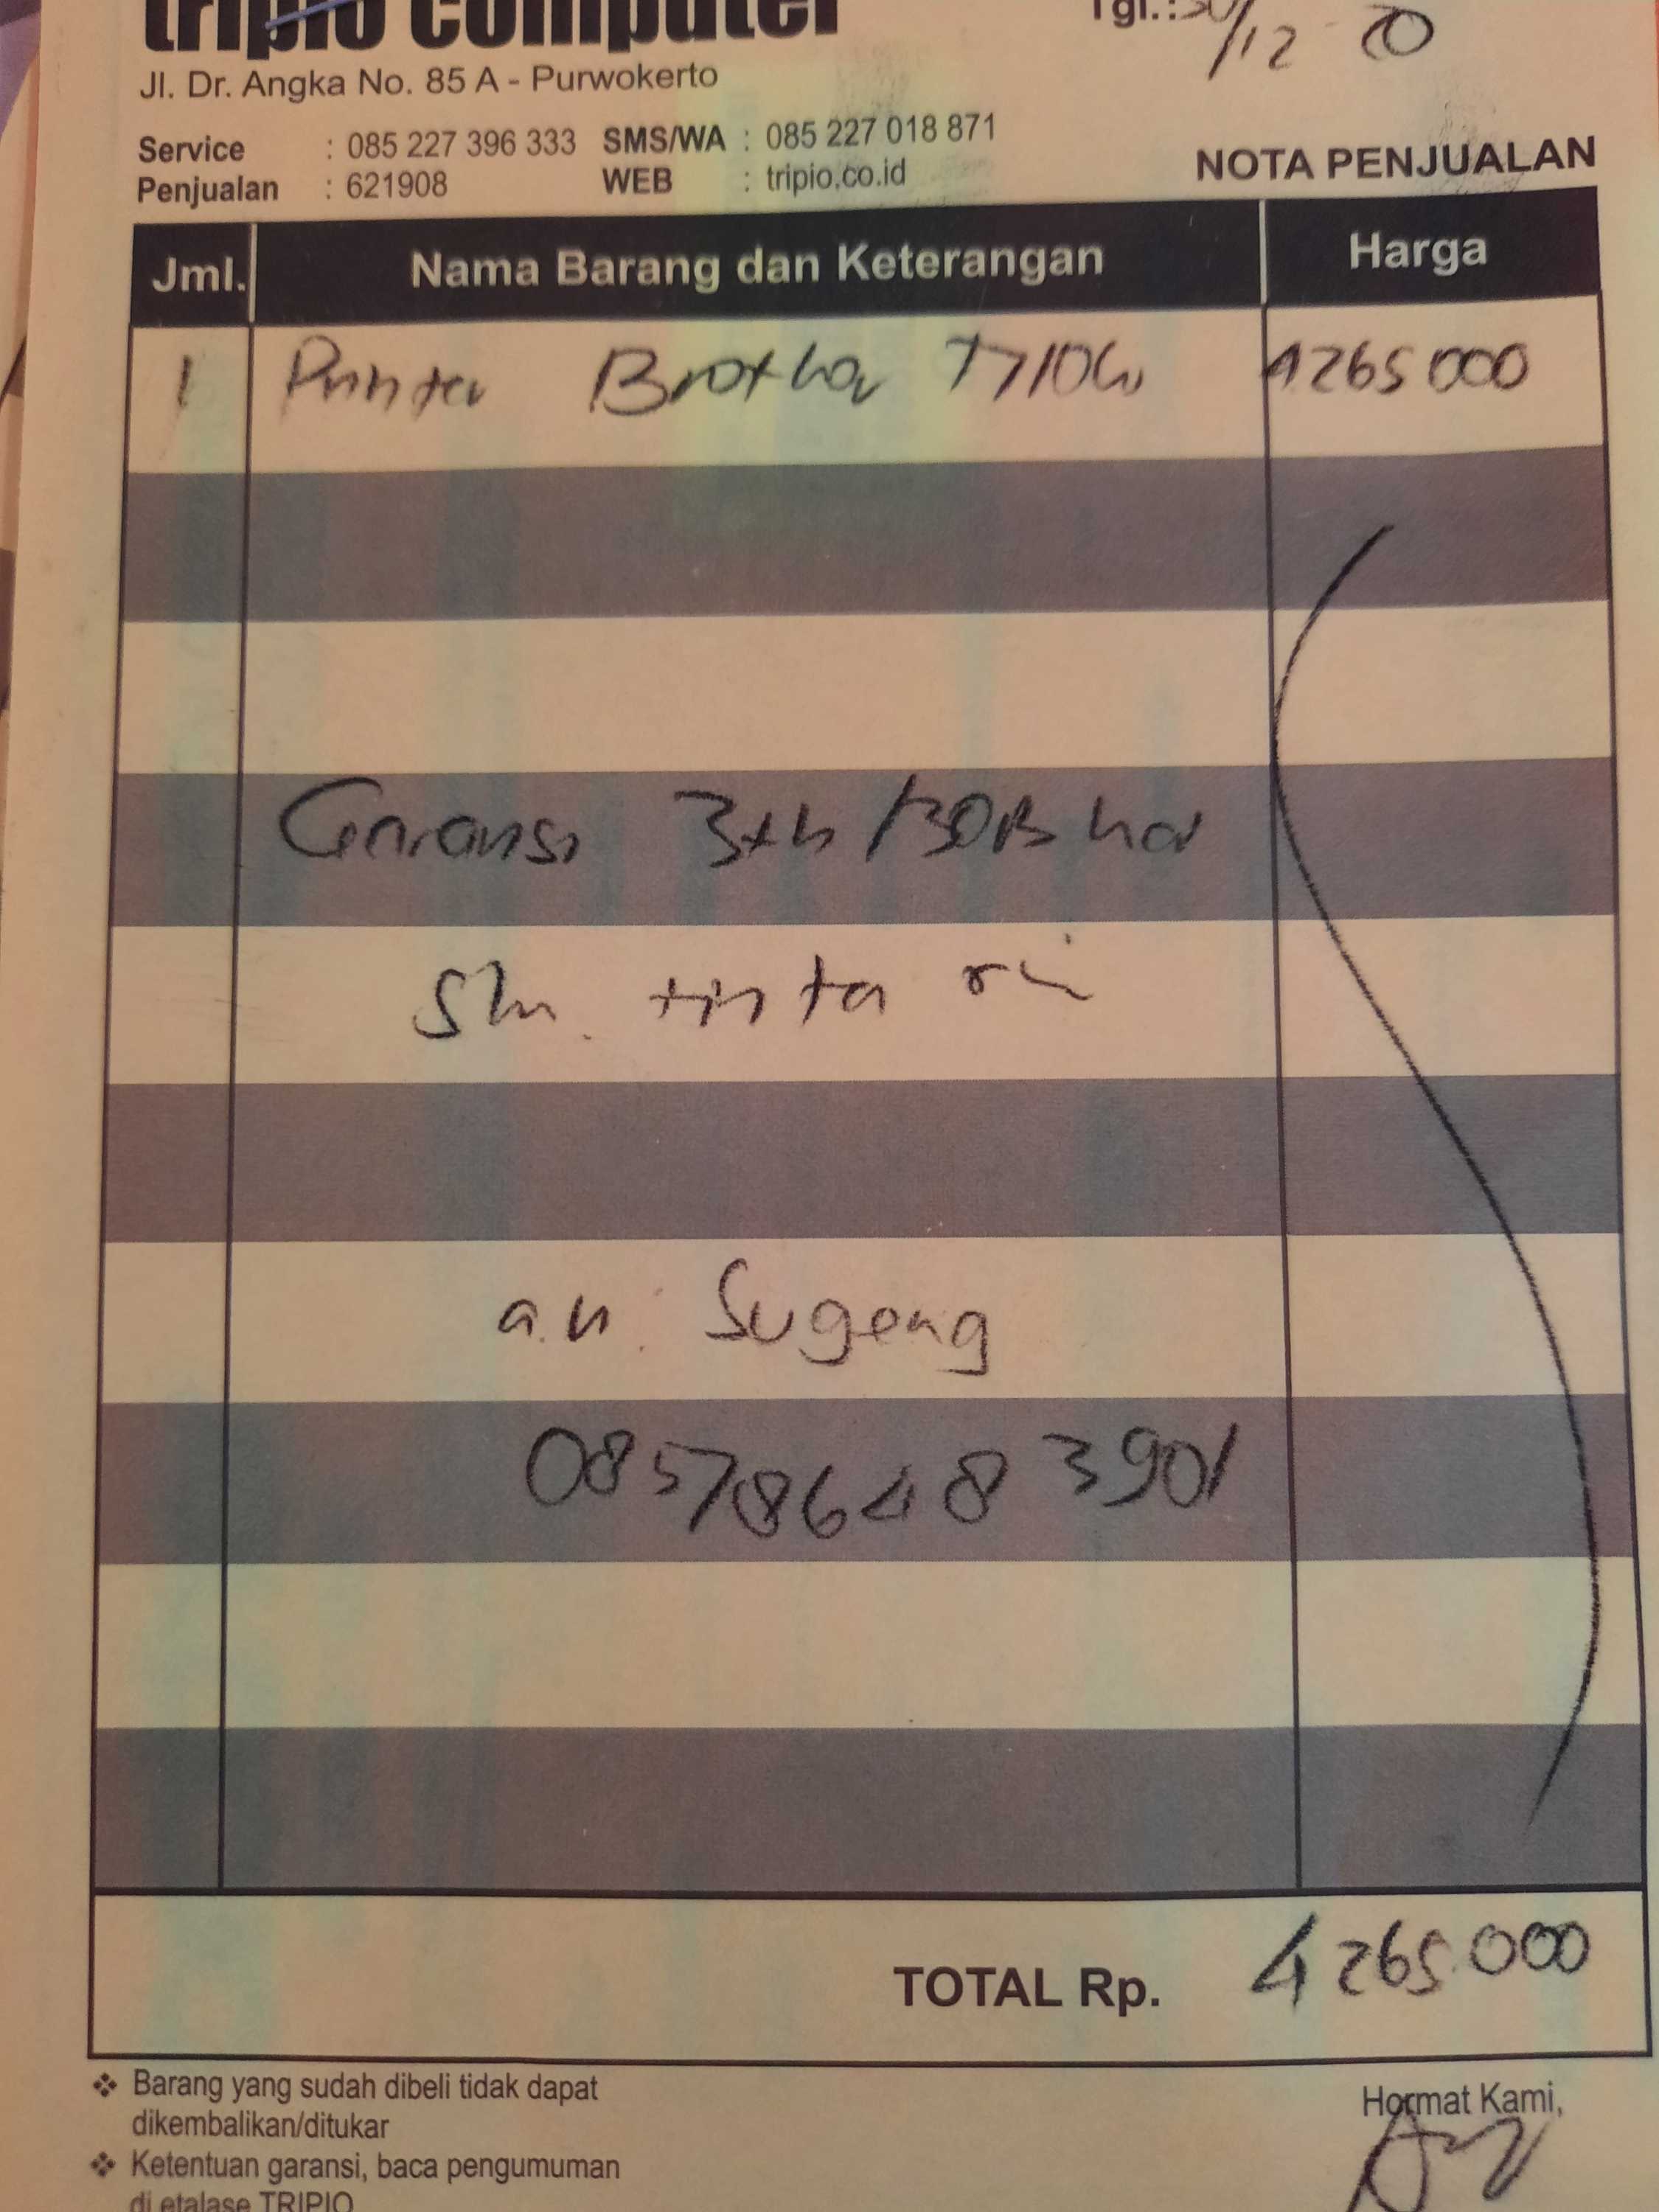 tripio computer
Tgl.: 30/12 20
Jl. Dr. Angka No. 85 A - Purwokerto
Service : 085 227 396 333 SMS/WA : 085 227 018 871
Penjualan : 621908 WEB : tripio.co.id
NOTA PENJUALAN
Jml. Nama Barang dan Keterangan Harga
1 Printer Brother T710W 4265000
Garansi 3th/30Rb
tinta
a.n. Sugeng
085786483901
TOTAL Rp. 4265.000
❖ Barang yang sudah dibeli tidak dapat
dikembalikan/ditukar
Hormat Kami,
❖ Ketentuan garansi, baca pengumuman
di etalase TRIPIO